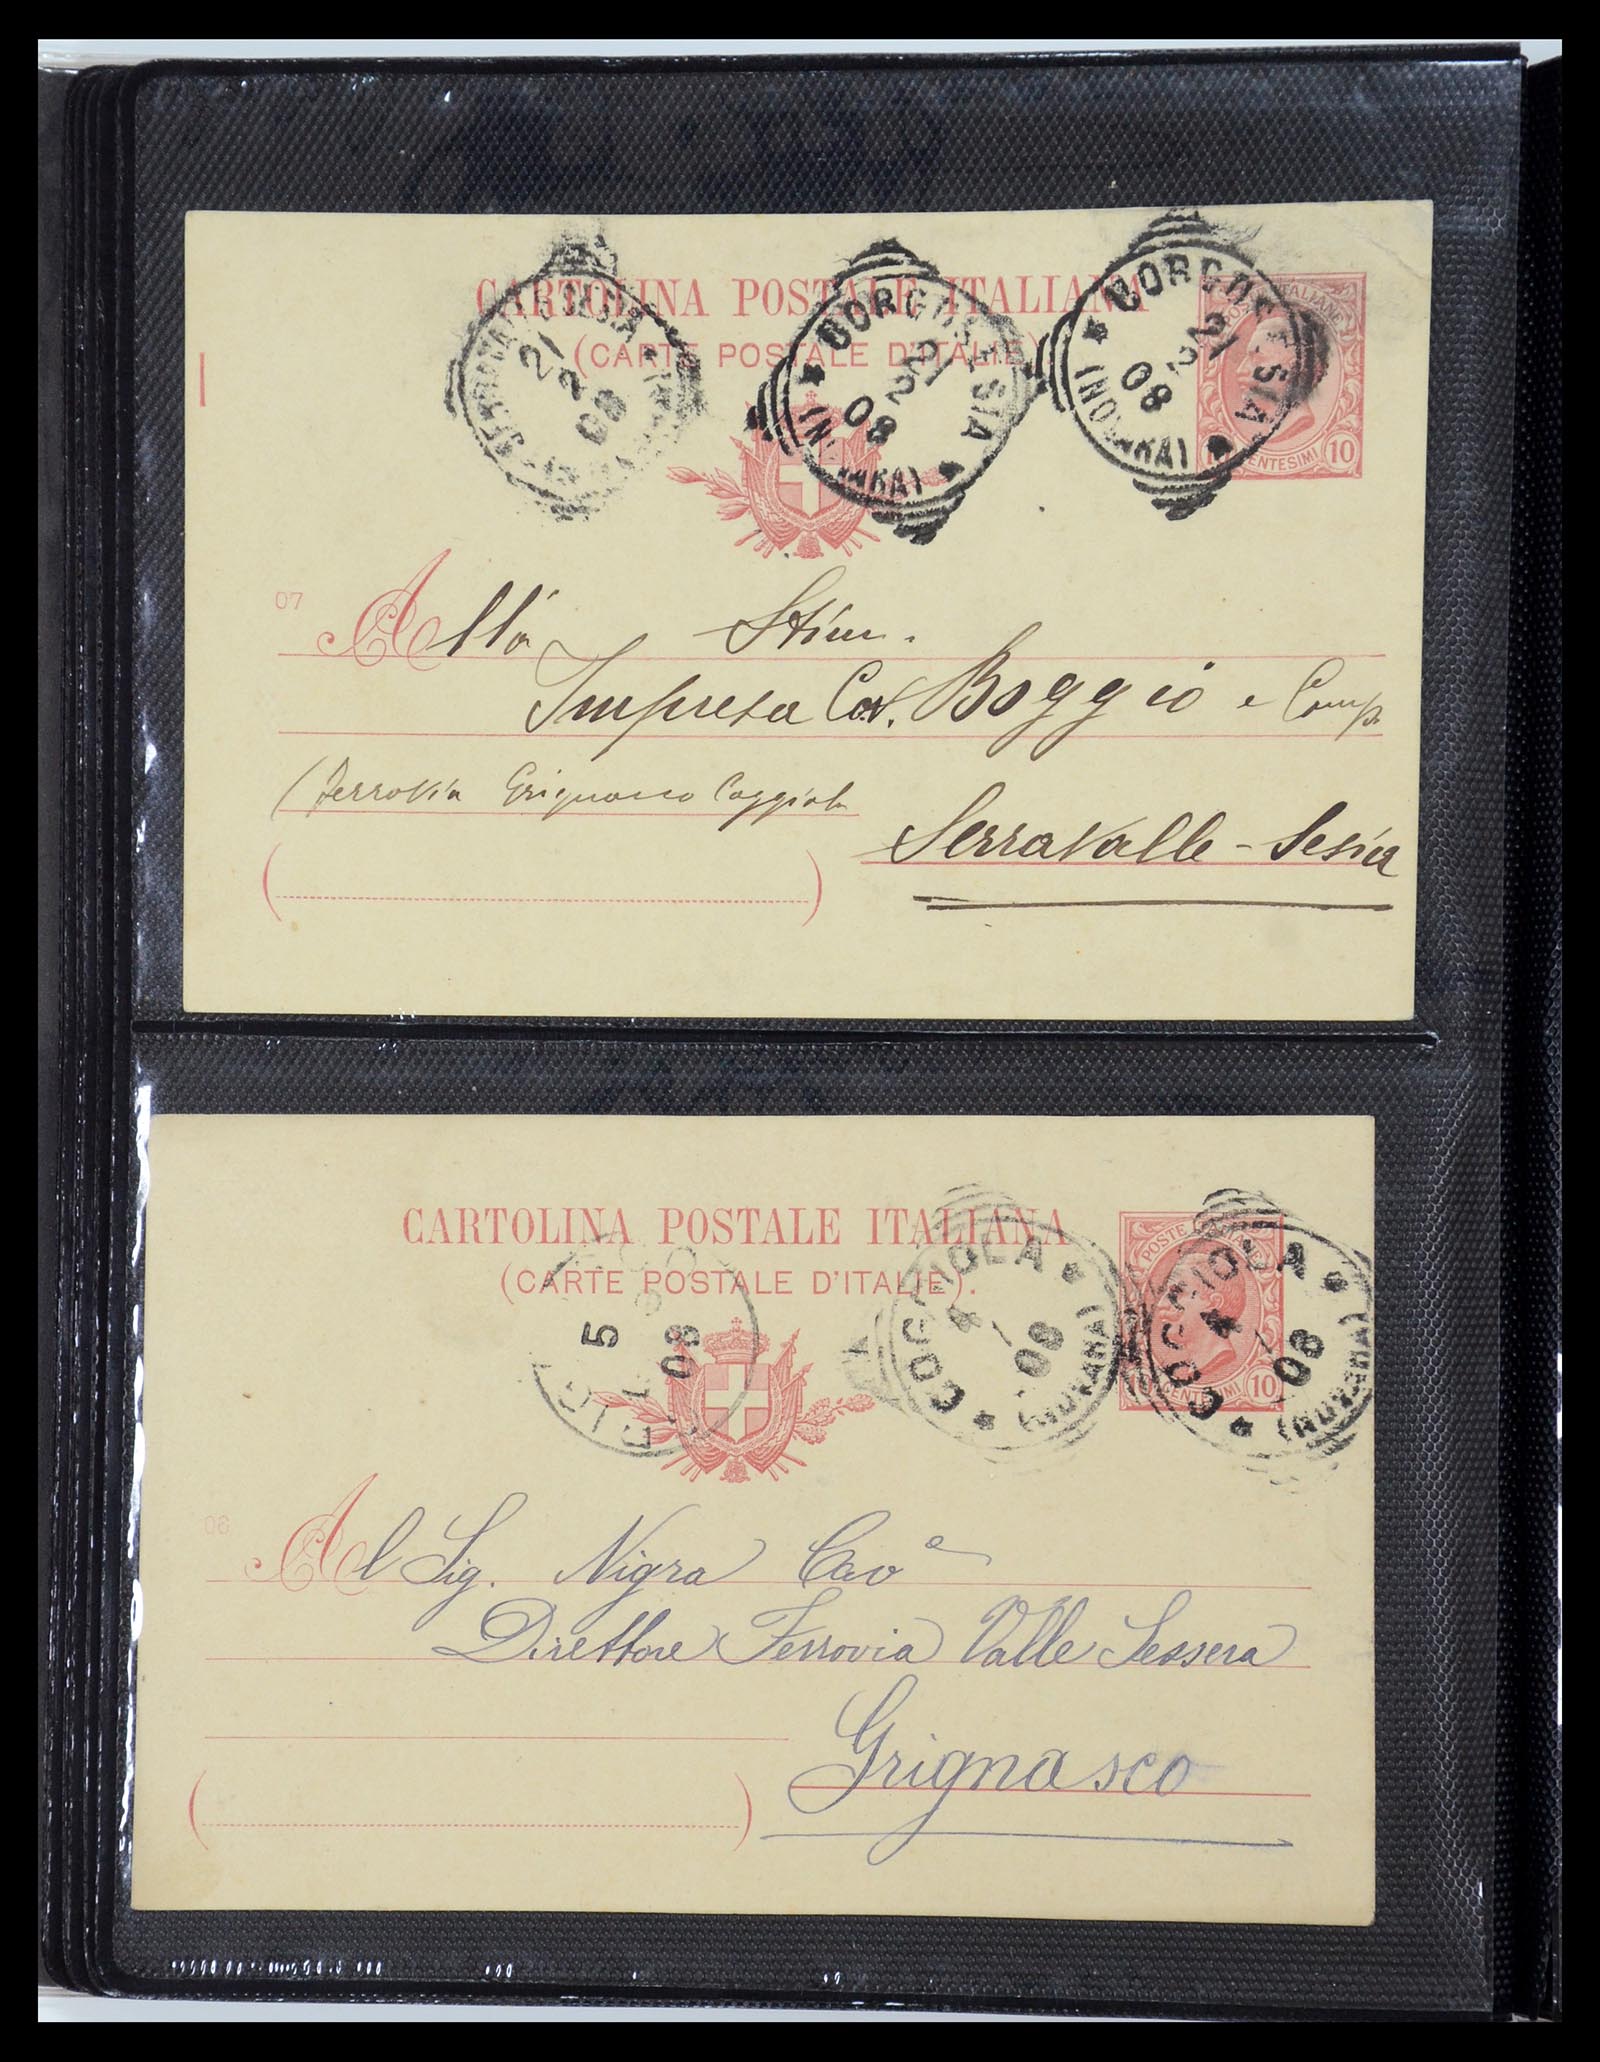 CARTOLINA POSTALE ITALIANA
(CARTE POSTALE D'ITALIE)
BORGOSESIA
21 2 08
(NOVARA)
BORGOSESIA
21 2 08
(NOVARA)
21 2 08
CENTESIMI 10
07
Alla Stim.
Impresa Cav. Boggio e Comp.
(Ferrovia Grignasco Coggiola
Serravalle-Sesia
CARTOLINA POSTALE ITALIANA
(CARTE POSTALE D'ITALIE).
POSTE ITALIANE
CENTESIMI 10
COGGIOLA
4 08
(NOVARA)
COGGIOLA
4 08
(NOVARA)
5 08
06
Al Sig. Nigra Cav e
Direttore Ferrovia Valle Sessera
Grignasco